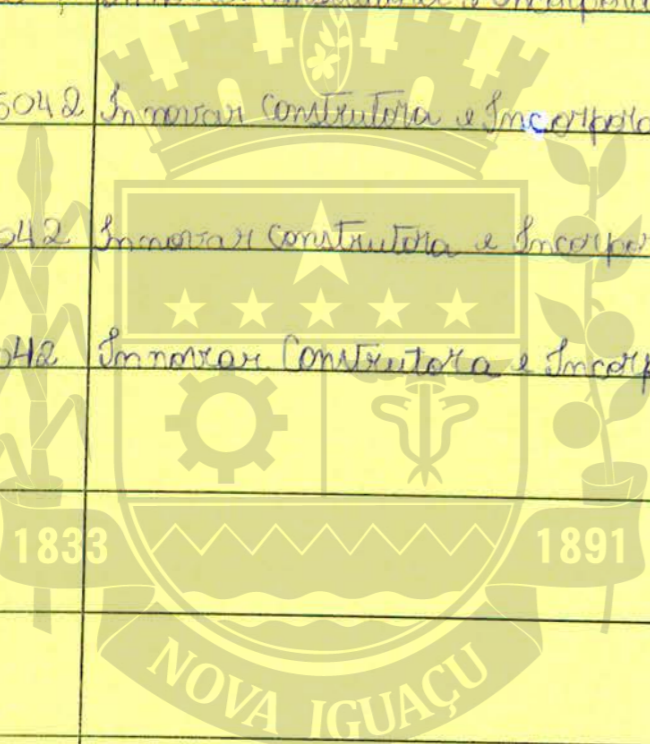 5042 Innovar Construtora e Incorpora
042 Innovar Construtora e Incorpor
042 Innovar Construtora e Incorp
1833
1891
NOVA IGUAÇU